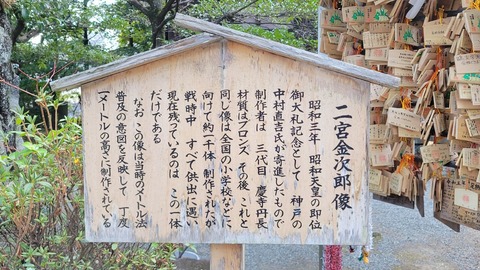 二宮金次郎像
昭和三年　昭和天皇の即位
御大札記念として　神戸の
中村直吉氏が寄進したもので
制作者は　三代目　慶寺丹長
材質はブロンズ　その後　これと
同じ像は全国の小学校などに
向けて約一千体　制作されたが
戦時中　すべて供出に遇い
現在残っているのは　この一体
だけである
なお　この像は当時のメートル法
普及の意図を反映して　丁度
一メートルの高さに制作されている